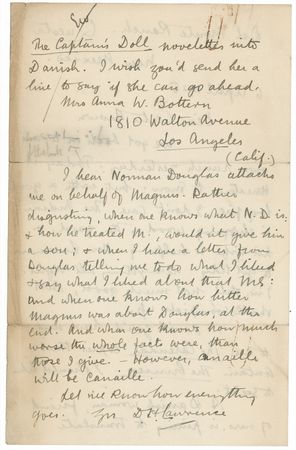 The Captain's Doll novelette into
Danish. I wish you'd send her a
line to say if she can go ahead.
Mrs Anna W. Bottern
1810 Walton Avenue
Los Angeles
(Calif.)
I hear Norman Douglas attacks
me on behalf of Magnus. Rather
disgusting, when one knows what N. D. is
& how he treated M., would it give him
a sou; & when I have a letter from
Douglas telling me to do what I liked
& say what I liked about that MS:
and when one knows how bitter
Magnus was about Douglas, at the
end. And when one knows how much
worse the whole facts were, than
those I give. — However, canaille
will be canaille.
Let me know how everything
goes. Yrs D H Lawrence